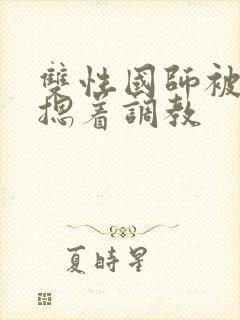 雙性國師被
摁着調教
夏時星